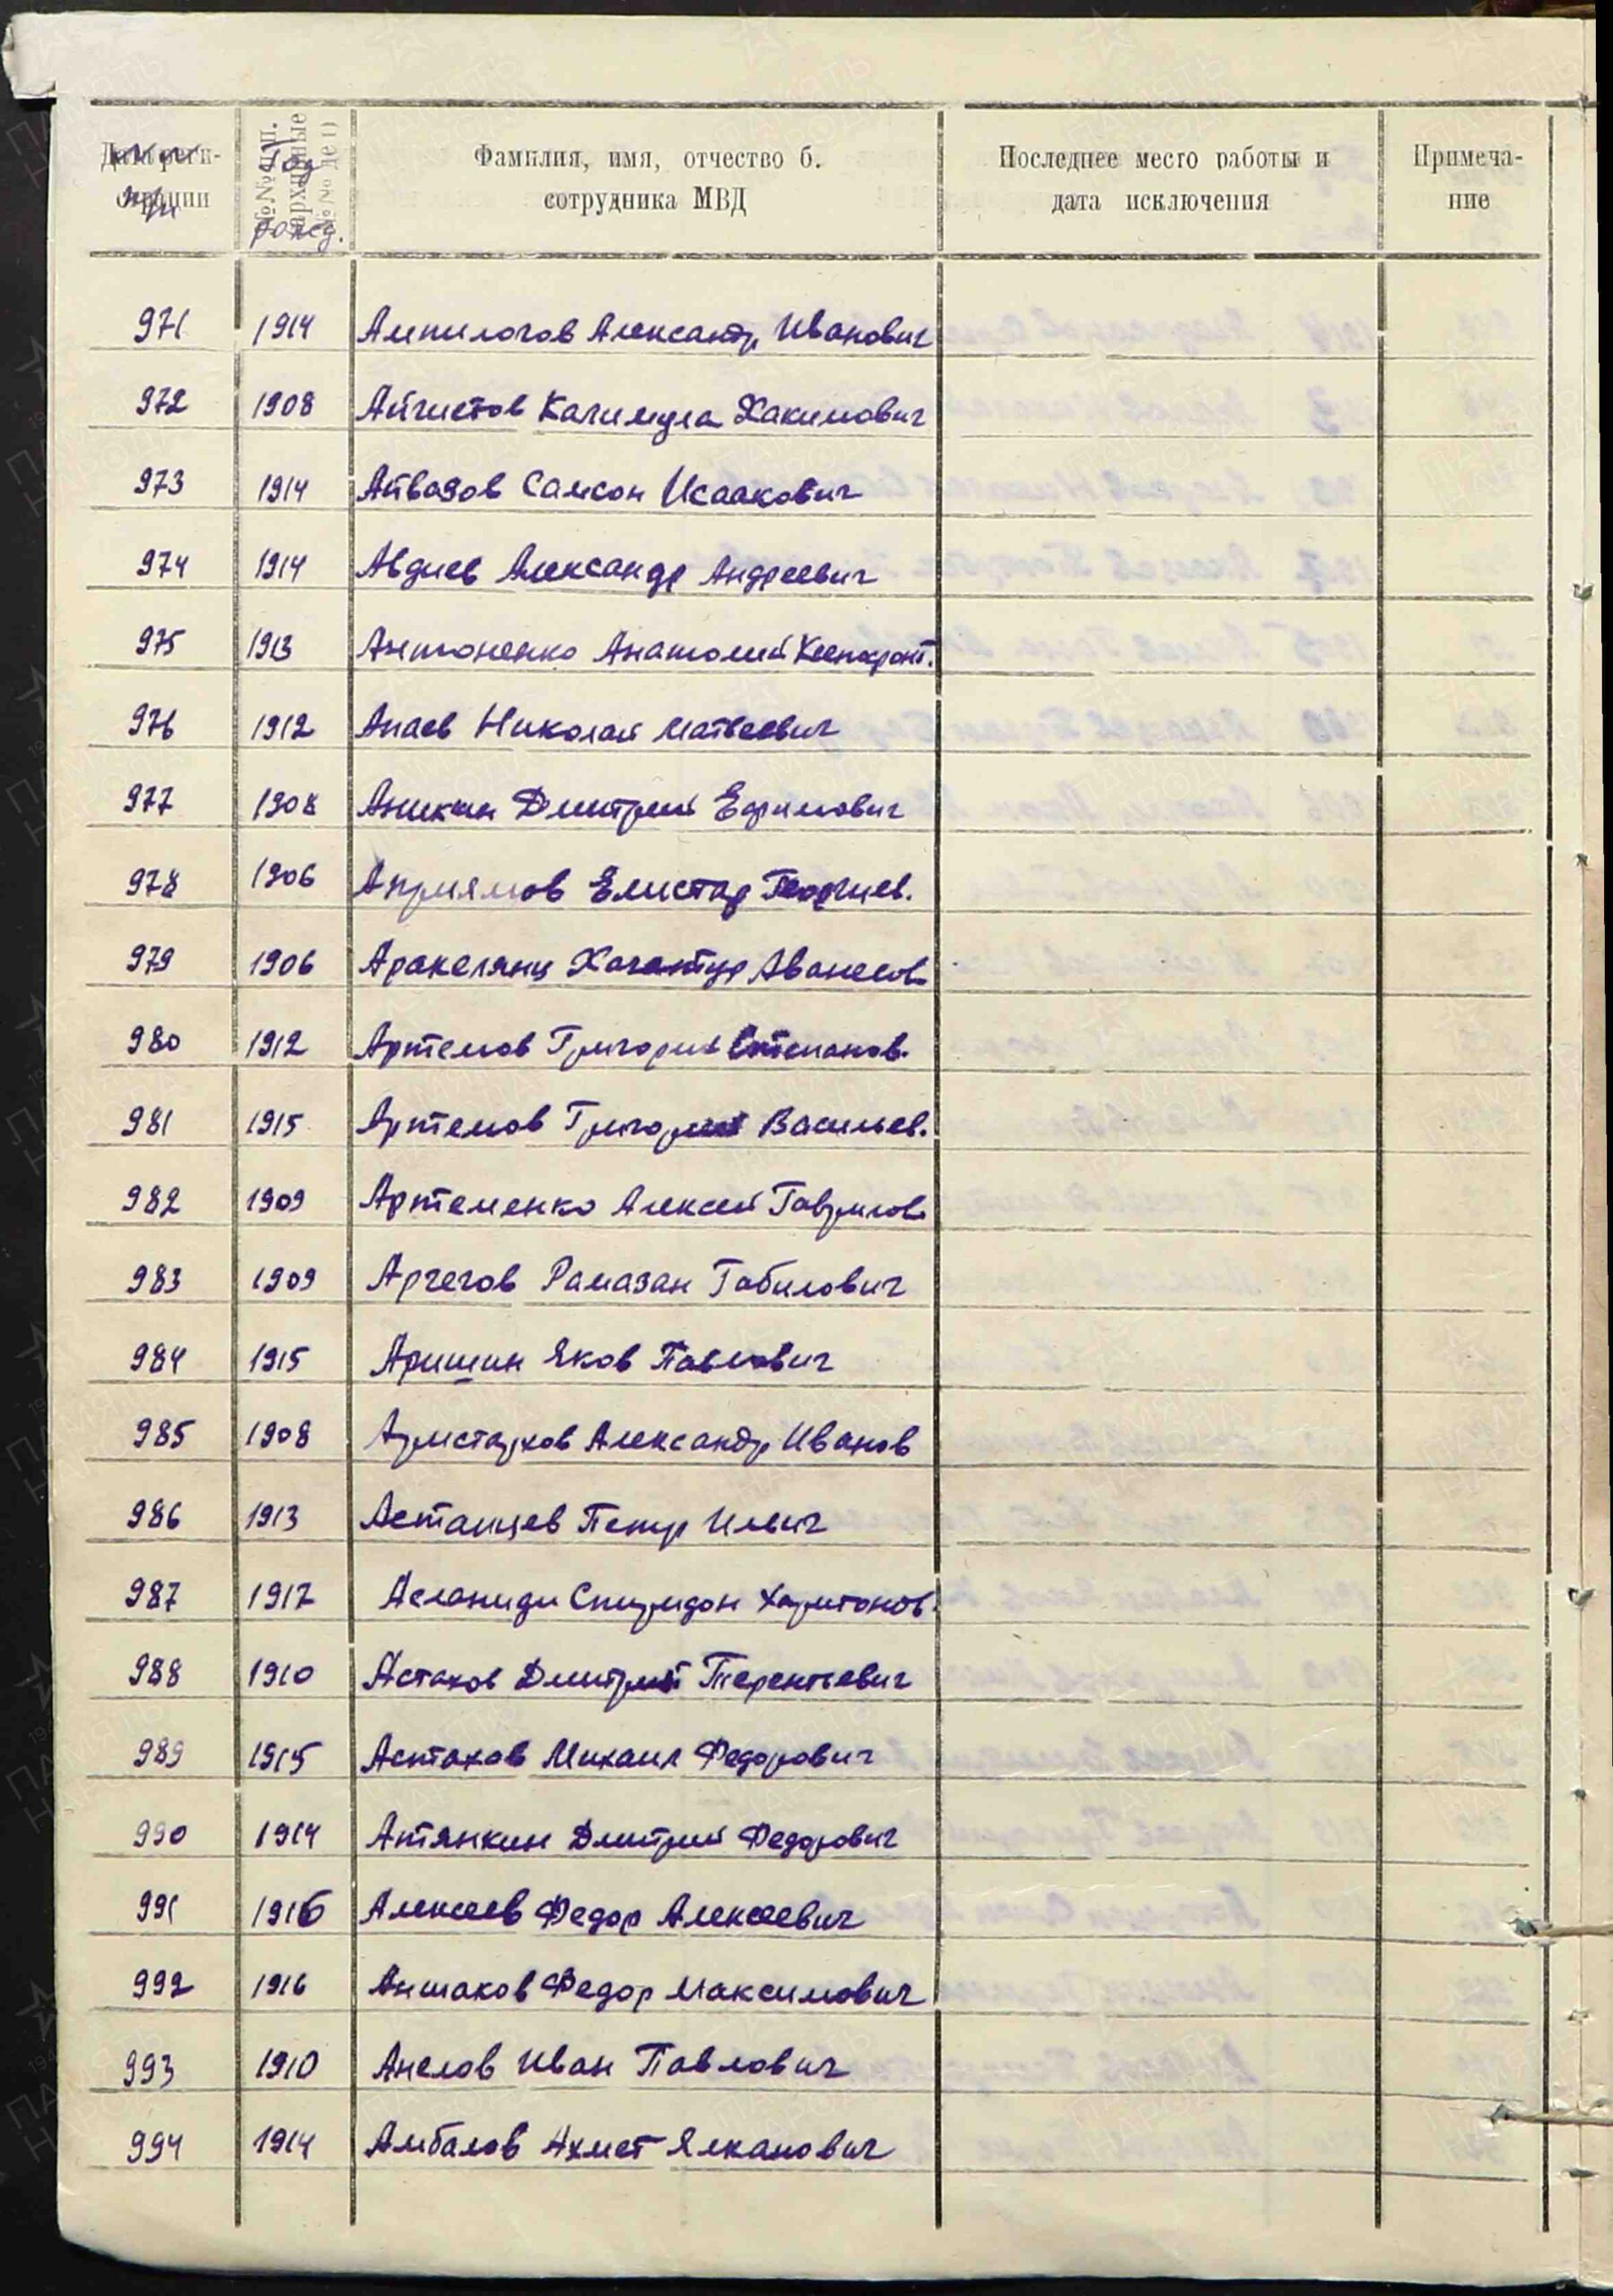 Фамилия, имя, отчество б. сотрудника МВД
Последнее место работы и дата исключения
Примечание
рожд.
971 1914 Ампилогов Александр Иванович
972 1908 Хакимович
973 1914 Айвазов Самсон Исаакович
974 1914 Авдиев Александр Андреевич
975 1913 Антоненко Анатолий
976 1912 Апаев Николай Матвеевич
977 1908 Аникин Дмитрий Ефимович
978 1906 Георгиев.
979 1906 Аракелянц Хачатур Аванесов.
980 1912 Артемов Григорий Степанов.
981 1915 Артемов Григорий Васильев.
982 1909 Артеменко Алексей Гаврилов.
983 1909 Арчегов Рамазан Габилович
984 1915 Аришин Яков Павлович
985 1908 Аристархов Александр Иванов
986 1913 Астанцев Петр Ильич
987 1917 Асланиди Спиридон Харитонов.
988 1910 Астахов Дмитрий Терентьевич
989 1915 Астахов Михаил Федорович
990 1914 Атянкин Дмитрий Федорович
991 1916 Алексеев Федор Алексеевич
992 1916 Аншаков Федор Максимович
993 1910 Иван Павлович
994 1914 Амбалов Ахмет